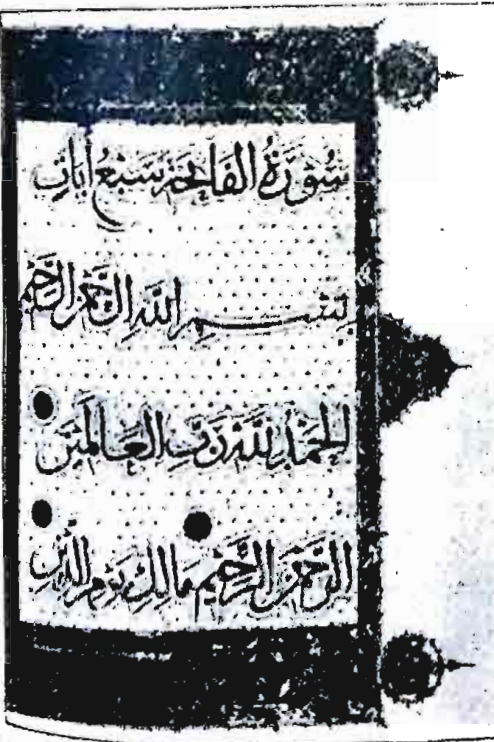 سُورَةُ الفَاتِحَةِ سَبْعُ آيَاتٍ
بِسْمِ اللَّهِ الرَّحْمَنِ الرَّحِيمِ
الْحَمْدُ لِلَّهِ رَبِّ الْعَالَمِينَ
الرَّحْمَنِ الرَّحِيمِ مَالِكِ يَوْمِ الدِّينِ